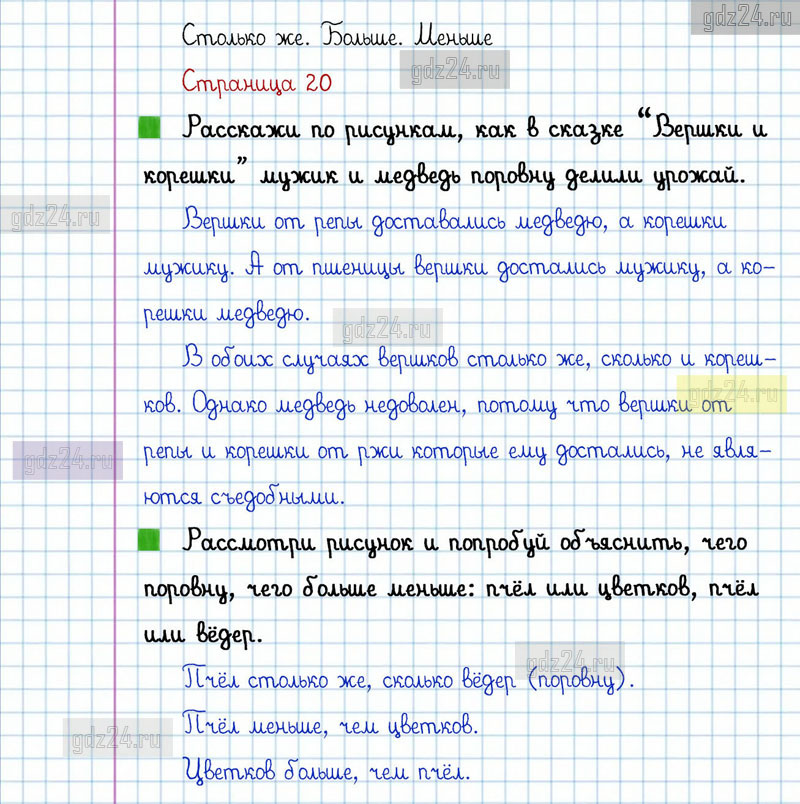 gdz24.ru
Столько же. Больше. Меньше
gdz24.ru
Страница 20
Расскажи по рисункам, как в сказке "Вершки и
корешки" мужик и медведь поровну делили урожай.
gdz24.ru
Вершки от репы доставались медведю, а корешки
мужику. А от пшеницы вершки достались мужику, а ко-
решки медведю.
gdz24.ru
В обоих случаях вершков столько же, сколько и кореш-
gdz24.ru
ков. Однако медведь недоволен, потому что вершки от
репы и корешки от ржи которые ему достались, не явля-
gdz24.ru
ются съедобными.
Рассмотри рисунок и попробуй объяснить, чего
поровну, чего больше меньше: пчёл или цветков, пчёл
или вёдер.
gdz24.ru
Пчёл столько же, сколько вёдер (поровну).
Пчёл меньше, чем цветков.
gdz24.ru
Цветков больше, чем пчёл.